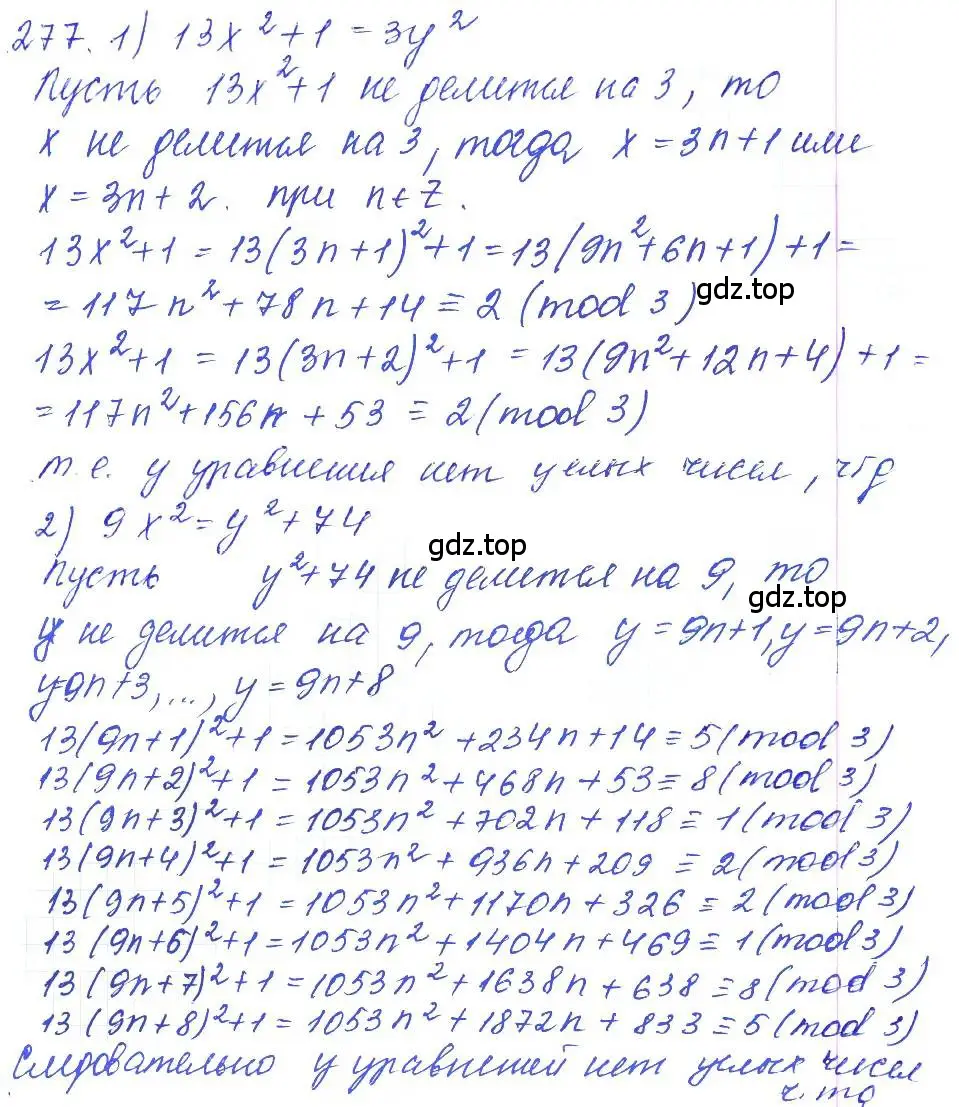 277. 1) 13x² + 1 = 3y²
Пусть 13x² + 1 не делится на 3, то
x не делится на 3, тогда x = 3n + 1 или
x = 3n + 2. при n ∈ Z.
13x² + 1 = 13(3n + 1)² + 1 = 13(9n² + 6n + 1) + 1 =
= 117n² + 78n + 14 ≡ 2 (mod 3)
gdz.top
13x² + 1 = 13(3n + 2)² + 1 = 13(9n² + 12n + 4) + 1 =
= 117n² + 156n + 53 ≡ 2 (mod 3)
т.е. у уравнения нет целых чисел, чтд
2) 9x² = y² + 74
gdz.top
Пусть y² + 74 не делится на 9, то
gdz.top
y не делится на 9, тогда y = 9n + 1, y = 9n + 2,
y = 9n + 3, ..., y = 9n + 8
13(9n + 1)² + 1 = 1053n² + 234n + 14 ≡ 5 (mod 3)
13(9n + 2)² + 1 = 1053n² + 468n + 53 ≡ 8 (mod 3)
13(9n + 3)² + 1 = 1053n² + 702n + 118 ≡ 1 (mod 3)
13(9n + 4)² + 1 = 1053n² + 936n + 209 ≡ 2 (mod 3)
13(9n + 5)² + 1 = 1053n² + 1170n + 326 ≡ 2 (mod 3)
13(9n + 6)² + 1 = 1053n² + 1404n + 469 ≡ 1 (mod 3)
13(9n + 7)² + 1 = 1053n² + 1638n + 638 ≡ 8 (mod 3)
13(9n + 8)² + 1 = 1053n² + 1872n + 833 ≡ 5 (mod 3)
Следовательно у уравнений нет целых чисел
ч.тд